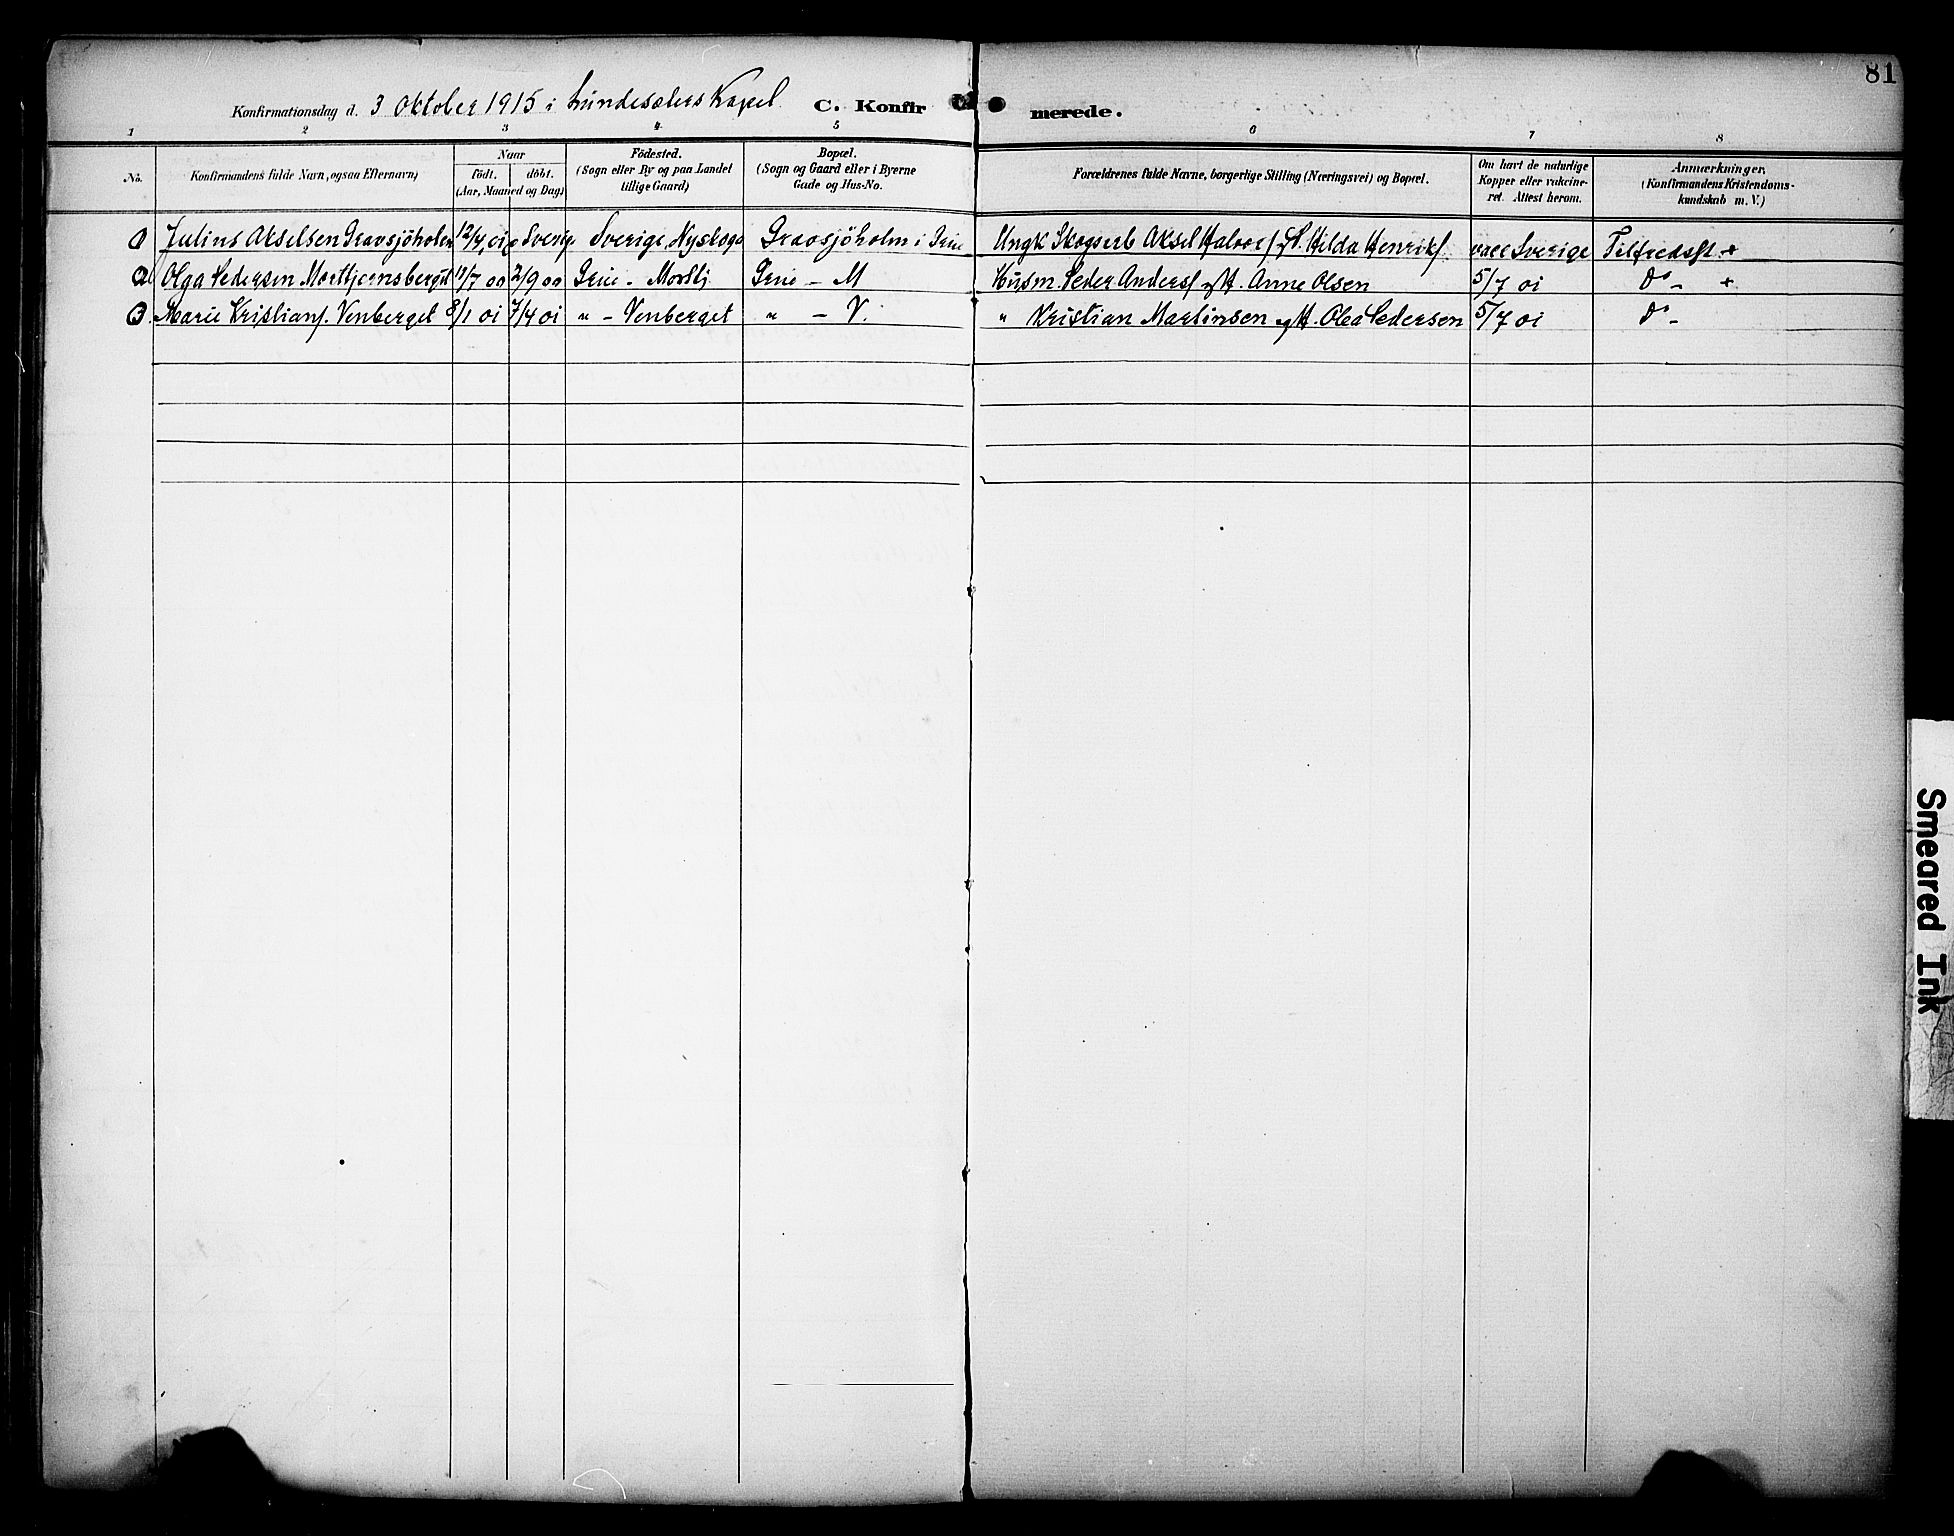 81
Konfirmationsdag d. 3 Oktober 1915 i Lundesæters Kapel C. Konfirmerede.
1 2 3 4 5 6 7 8
No. Konfirmandens fulde Navn, ogsaa Efternavn) Naar født. døbt. (Aar, Maaned og Dag) Fødested. (Sogn eller By og paa Landet tillige Gaard) Bopæl. (Sogn og Gaard eller i Byerne Gade og Hus-No. Forældrenes fulde Navne, borgerlige Stilling (Næringsvei) og Bopæl. Om havt de naturlige Kopper eller vakcineret. Attest herom. Anmærkninger, (Konfirmandens Kristendomskundskab m. V.)
1 Julius Akselsen Gravsjöholm 12/4 01 i Sverige Sverige, Nyskoga Gravsjöholm i Grue Ungk Skogsarb Aksel Halvors. og P. Hilda Henriks. vacc Sverige Tilfredsst +
2 Olga Pedersen Morttjernsberget 11/7 00 2/9 00 Grue - Morttj. Grue - M Husm. Peder Anders. og H. Anne Olsen 5/7 01 Do - +
3. Marie Kristians. Venberget 8/1 01 7/4 01 " - Venberget " - V. " Kristian Martinsen og H. Olea Pedersen 5/7 01 Do -
Smeared Ink